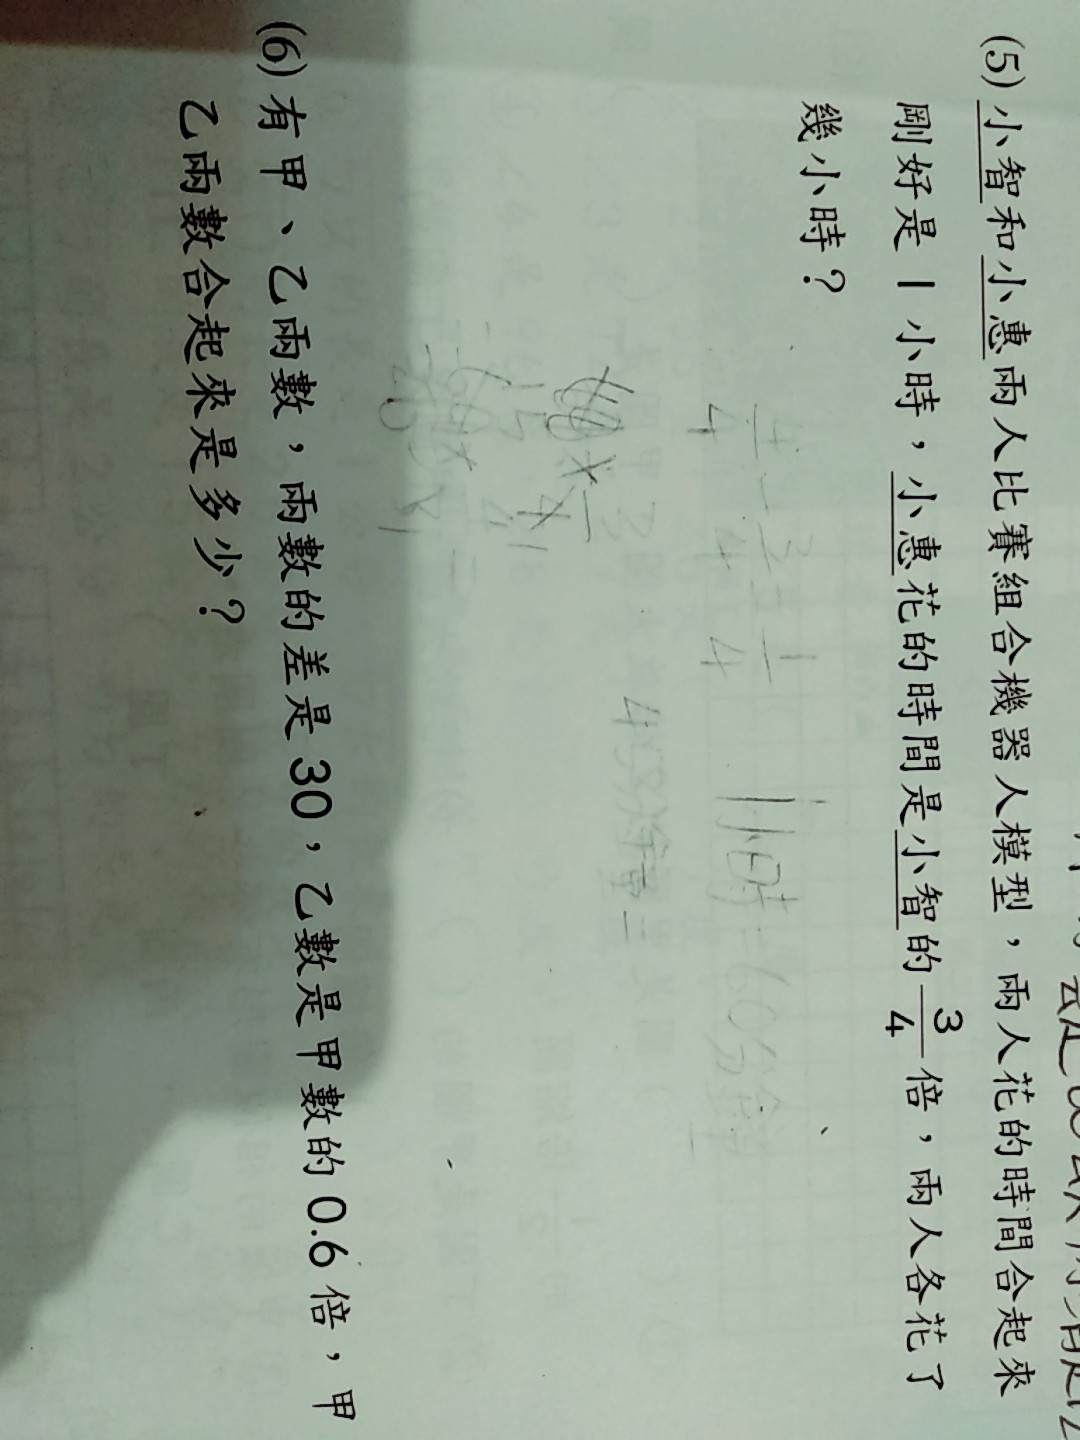 (5) 小智和小惠兩人比賽組合機器人模型，兩人花的時間合起來
剛好是1小時，小惠花的時間是小智的 3/4 倍，兩人各花了
幾小時？
4/4 - 3/4 = 1/4
1小時=60分鐘
(6) 有甲、乙兩數，兩數的差是30，乙數是甲數的0.6倍，甲
乙兩數合起來是多少？